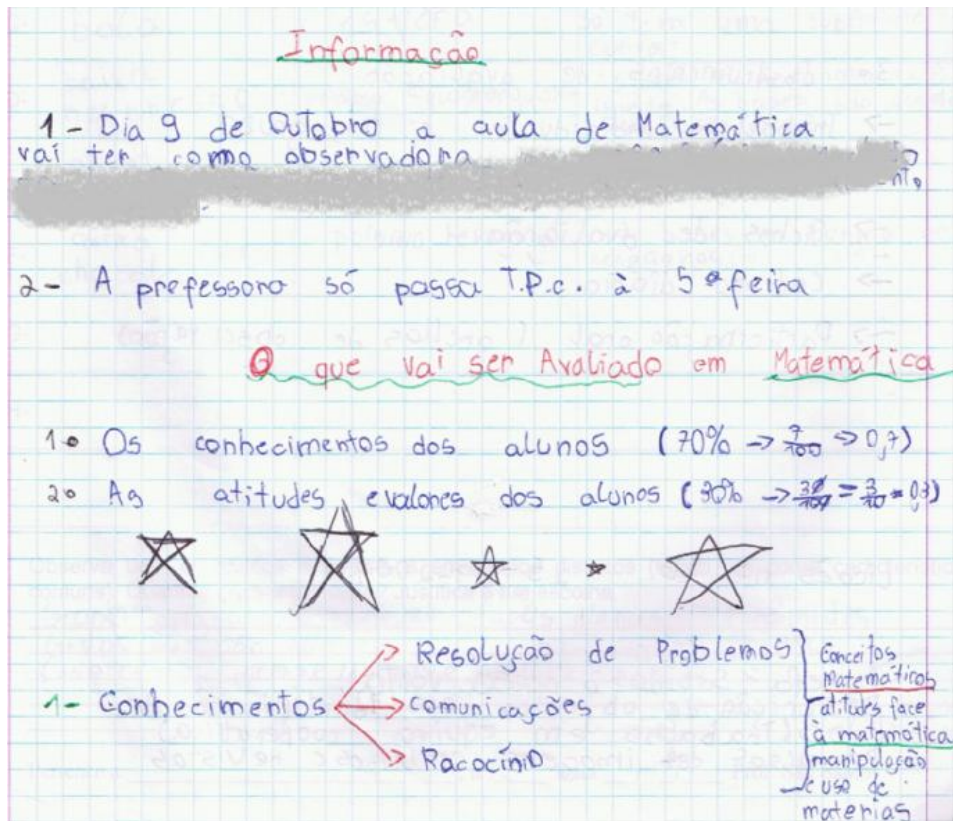 Informação
1 - Dia 9 de Outobro a aula de Matemática
vai ter como observadora
2 - A professora só passa T.P.c. à 5ª feira
O que vai ser Avaliado em Matemática
1• Os conhecimentos dos alunos (70% → 7/100 → 0,7)
2• As atitudes e valores dos alunos (30% → 30/100 = 3/10 = 0,3)
1 - Conhecimentos
→ Resolução de Problemas
→ comunicações
→ Racocínio
Conceitos
Matemáticos
atitudes face
à matemática
manipulação
e uso de
materias